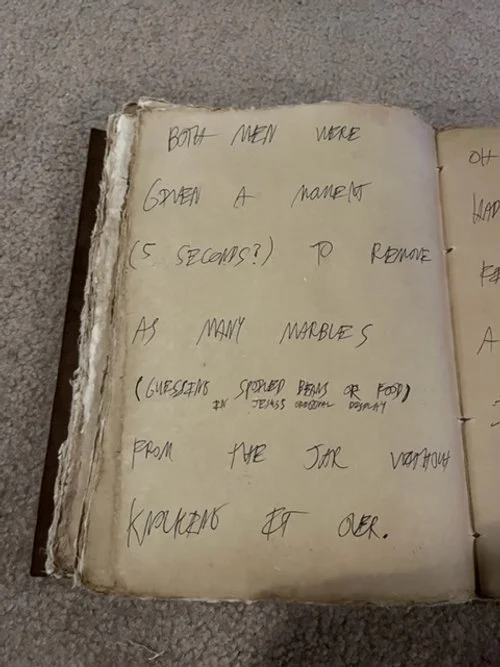 BOTH MEN WERE
GIVEN A MOMENT
(5 SECONDS?) TO REMOVE
AS MANY MARBLES
(GUESSING SPOILED BEANS OR FOOD)
IN ORIGINAL DISPLAY
FROM THE JAR WITHOUT
KNOCKING IT OVER.
OH
HAD
A